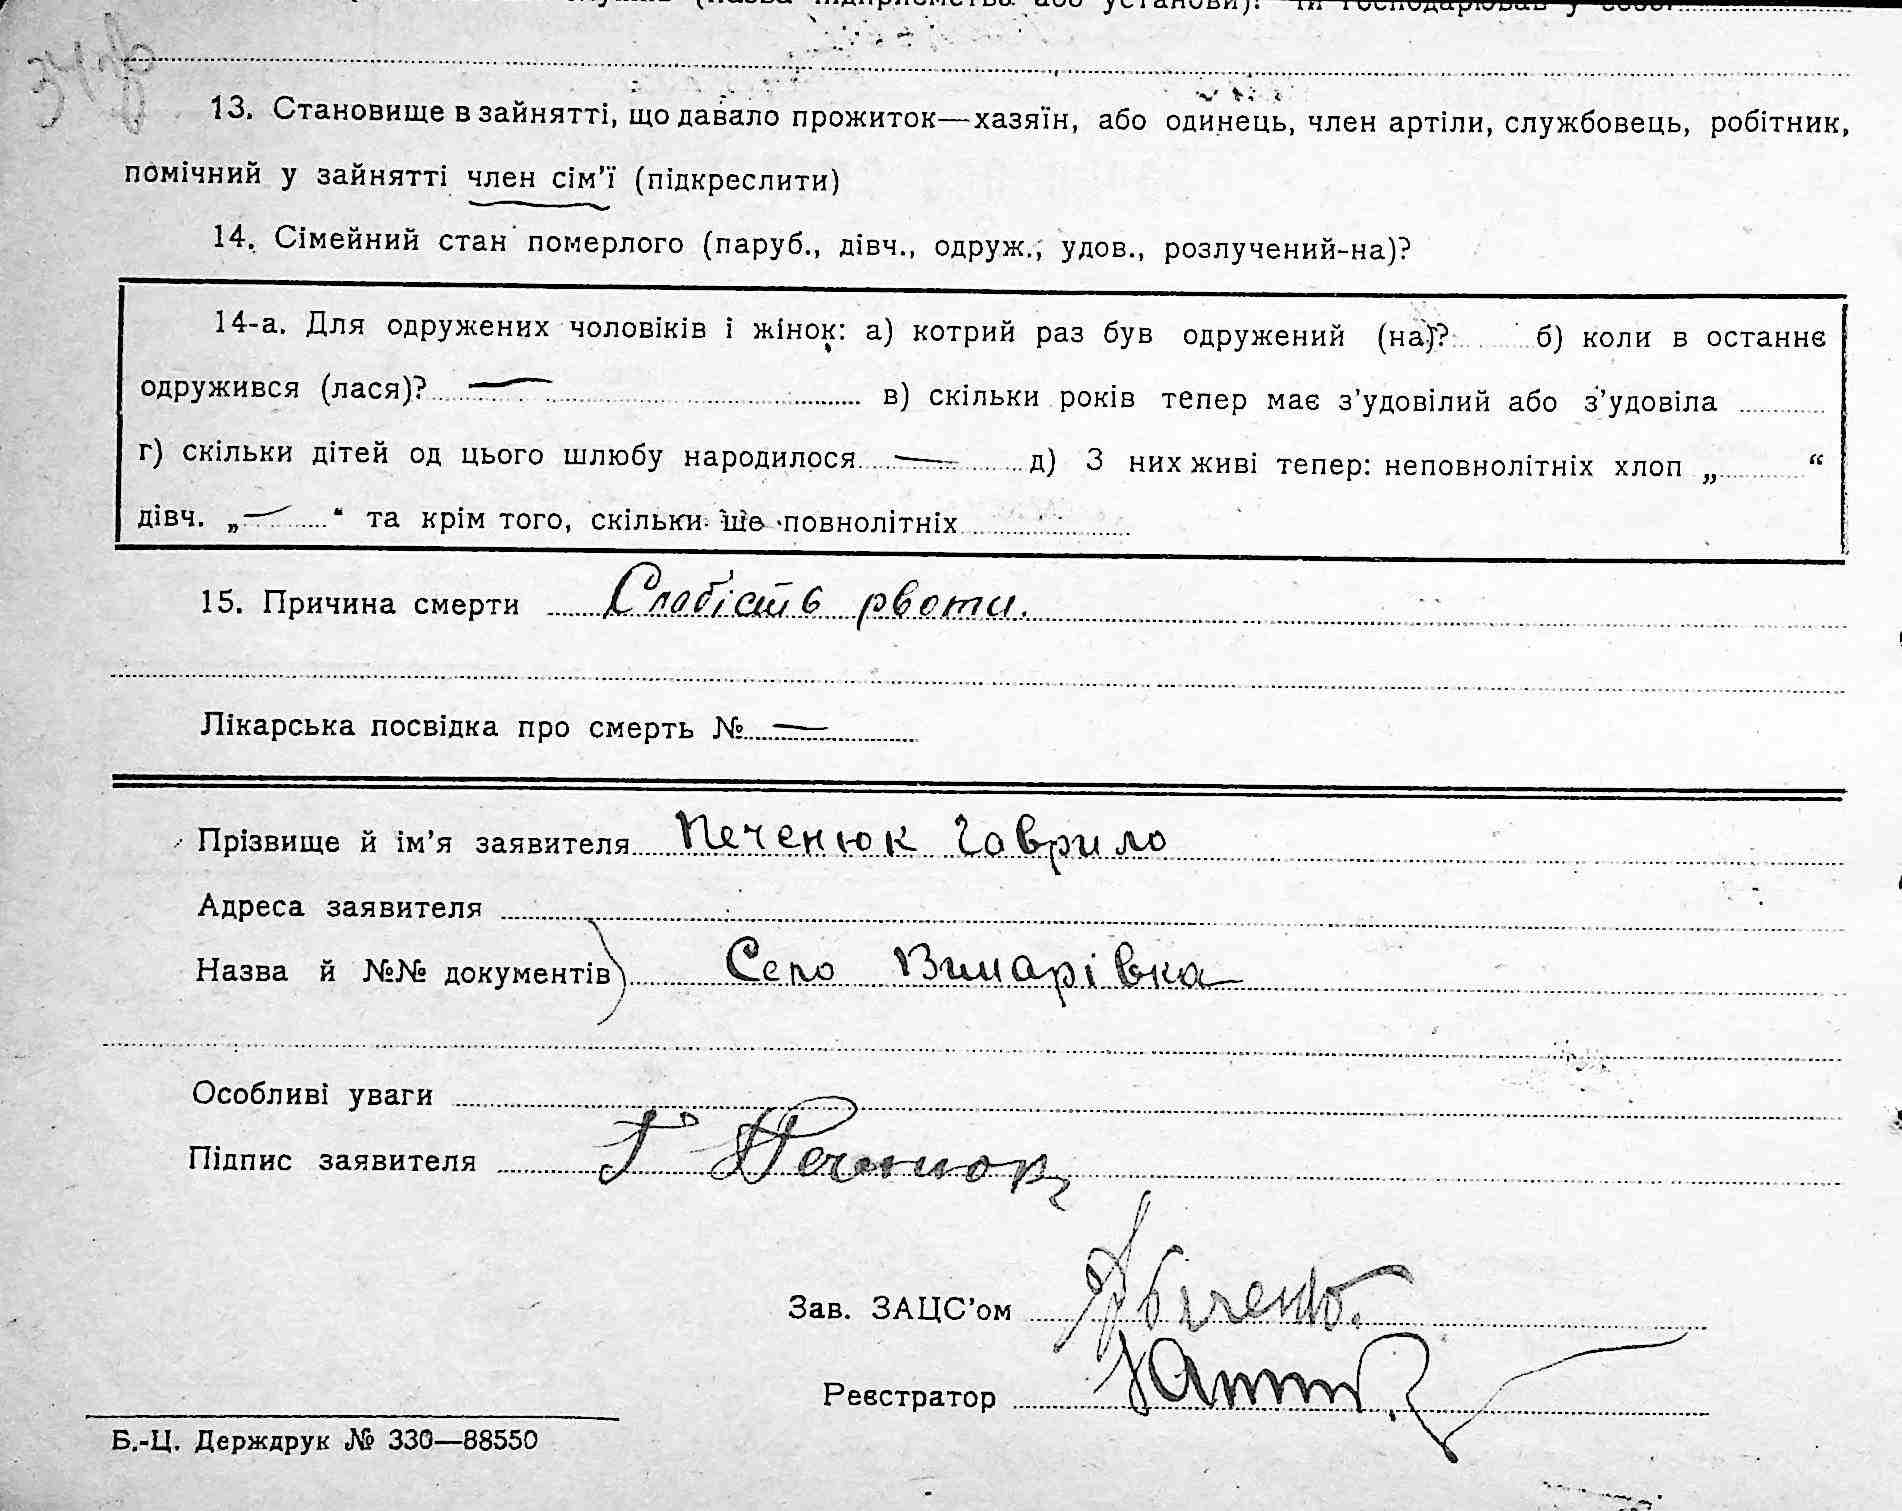 (назва підприємства або установи). Чи господарював у себе?
13. Становище в зайнятті, що давало прожиток—хазяїн, або одинець, член артіли, службовець, робітник,
помічний у зайнятті член сім’ї (підкреслити)
14. Сімейний стан померлого (паруб., дівч., одруж., удов., розлучений-на)?
14-а. Для одружених чоловіків і жінок: а) котрий раз був одружений (на)? б) коли в останнє
одружився (лася)? — в) скільки років тепер має з’удовілий або з’удовіла
г) скільки дітей од цього шлюбу народилося — д) З них живі тепер: неповнолітніх хлоп „ “
дівч. „ — “ та крім того, скільки ще повнолітніх
15. Причина смерти Слабість рвоти.
Лікарська посвідка про смерть № —
Прізвище й ім’я заявителя Печенюк Гаврило
Адреса заявителя
Назва й №№ документів) Село Винарівка
Особливі уваги
Підпис заявителя Г Печенюк
Зав. ЗАЦС’ом
Реєстратор
Б.-Ц. Держдрук № 330—88550